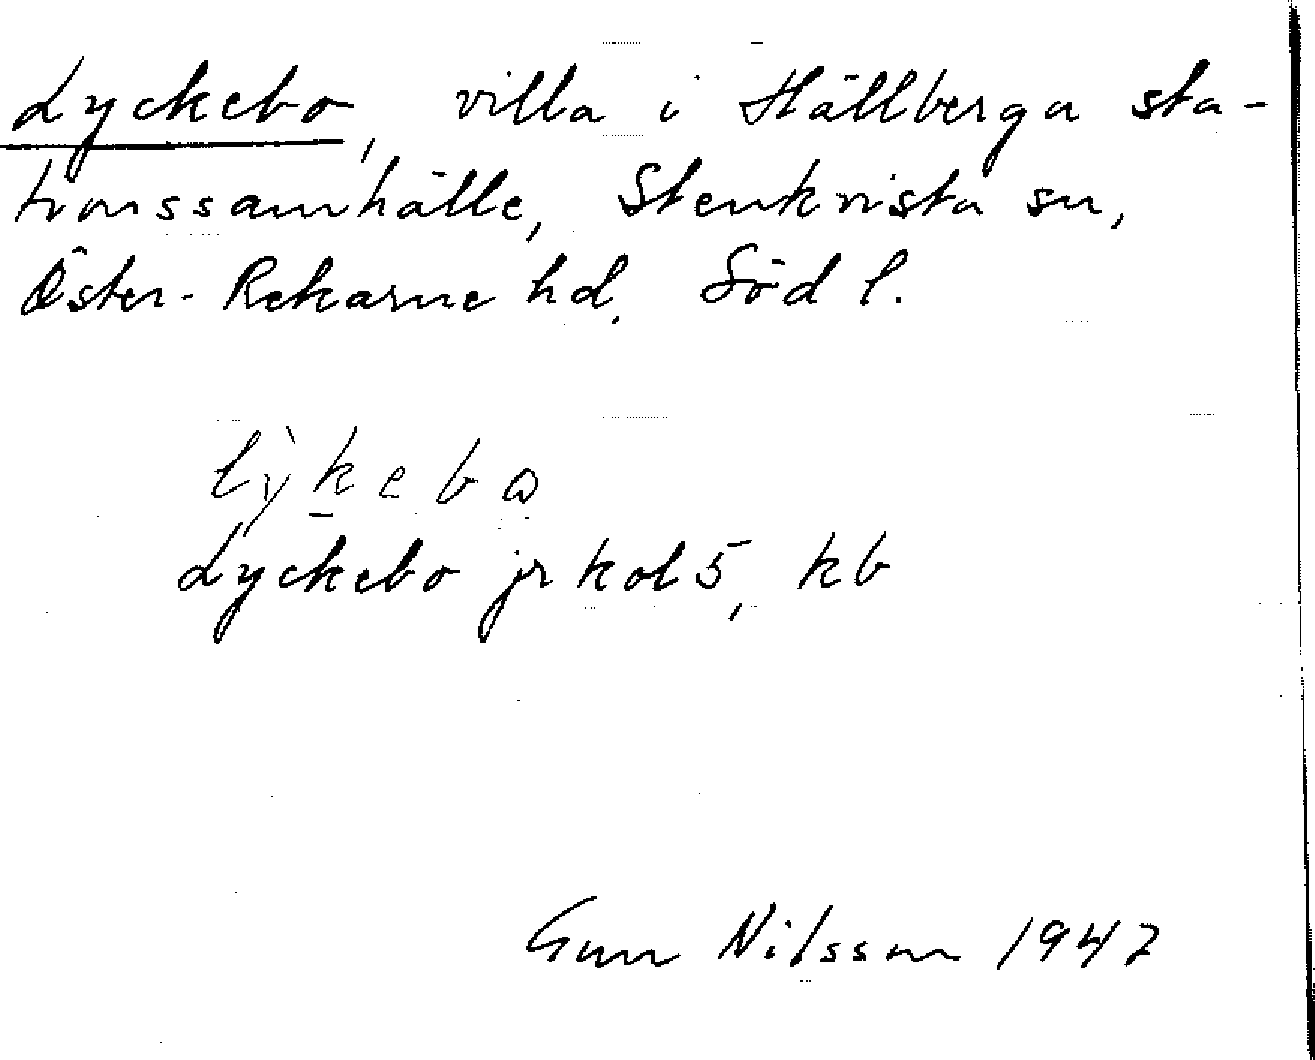 Lyckebo, villa i Hällberga sta-
tionssamhälle, Stenkvista sn,
Öster-Rekarne hd. Söd l.
lỳkebo
Lyckebo jr kol 5, kb
Gun Nilsson 1942